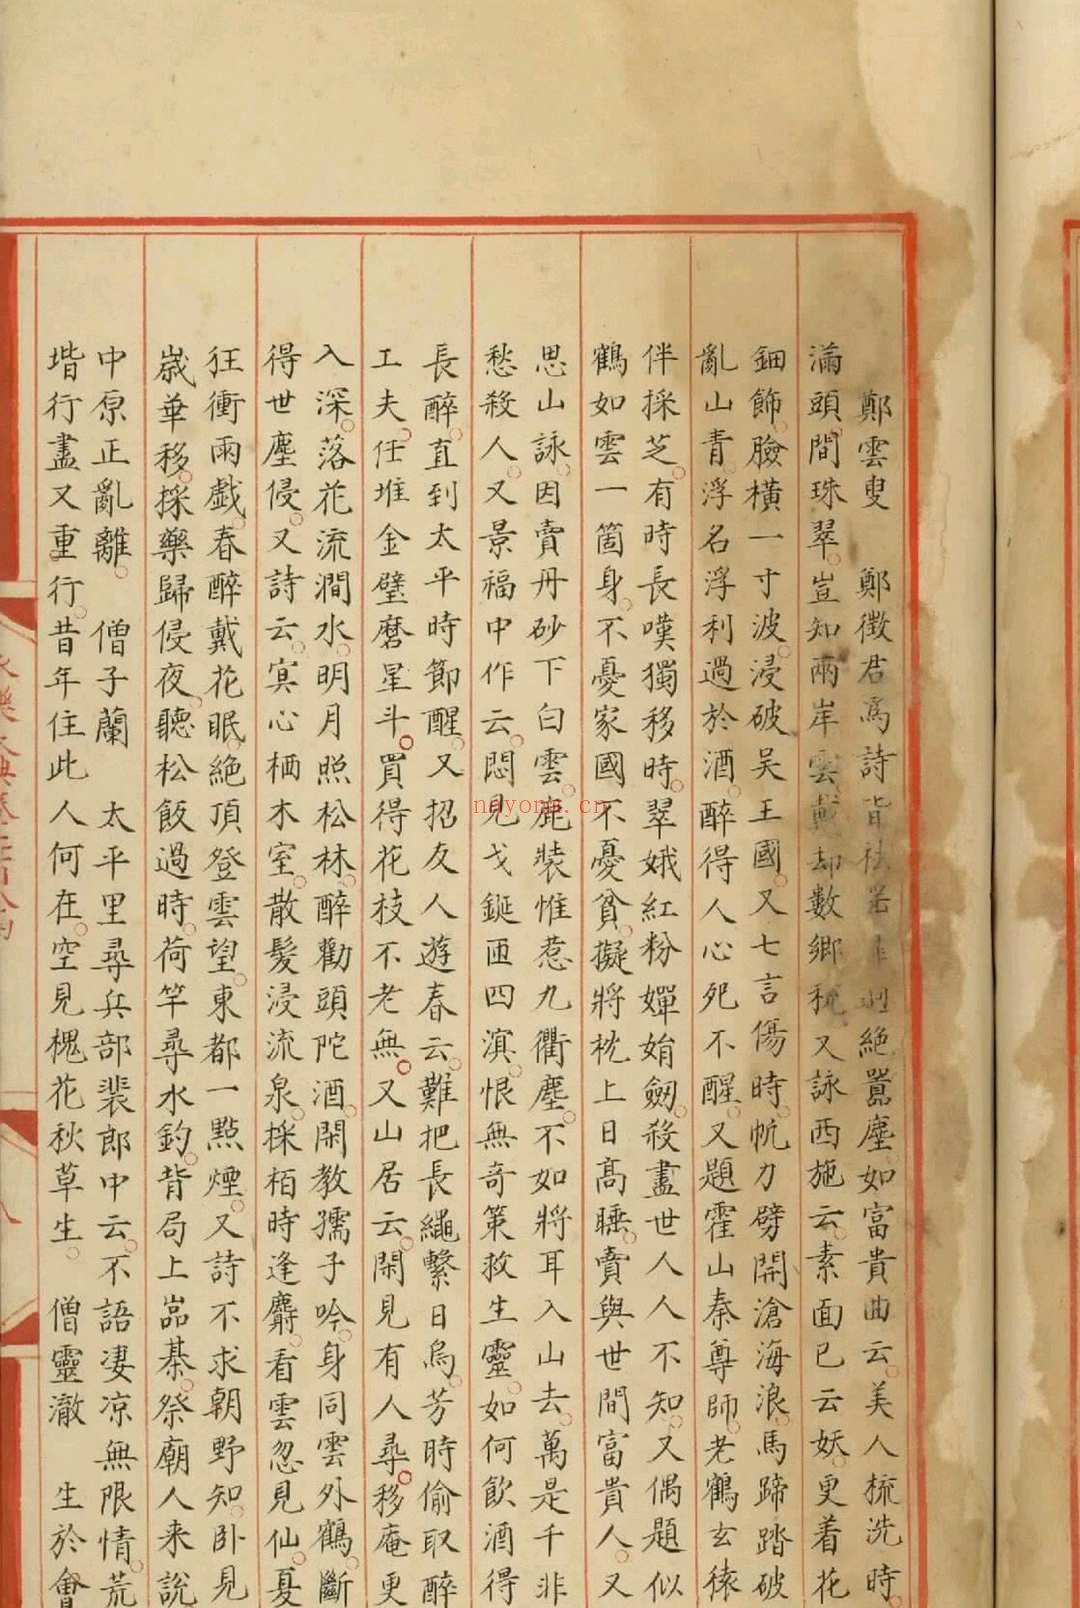 鄭雲叟 鄭徵君爲詩皆祛絶囂塵如富貴曲云美人梳洗時
滿頭間珠翠豈知兩岸雲戴却數鄉稅又詠西施云素面已云妖更着花
鈿飾臉橫一寸波浸破吴王國又七言傷時帆力劈開滄海浪馬蹄踏破
亂山青浮名浮利過於酒醉得人心死不醒又題霍山秦尊師老鶴玄猿
伴採芝有時長嘆獨移時翠娥紅粉嬋娟劒殺盡世人人不知又偶題似
鶴如雲一箇身不憂家國不憂貧擬將枕上日髙睡賣與世間富貴人又
思山詠因賣丹砂下白雲鹿裝惟惹九衢塵不如將耳入山去萬是千非
愁殺人又景福中作云悶見戈鋋匝四溟恨無奇策救生靈如何飲酒得
長醉直到太平時節醒又招友人遊春云難把長繩繫日烏芳時偷取醉
工夫任堆金璧磨星斗買得花枝不老無又山居云閑見有人尋移庵更
入深落花流澗水明月照松林醉勸頭陀酒閑教孺子吟身同雲外鶴斷
得世塵侵又詩云㝠心栖木室散髪浸流泉採栢時逢麝看雲忽見仙夏
狂衝雨戲春醉戴花眠絶頂登雲望東都一點煙又詩不求朝野知卧見
歳華移採藥歸侵夜聽松飯過時荷竿尋水釣背局上嵓棊祭廟人来說
中原正亂離 僧子蘭 太平里尋兵部裴郎中云不語凄凉無限情荒
堦行盡又重行昔年住此人何在空見槐花秋草生 僧靈澈 生於會
nayona.cn